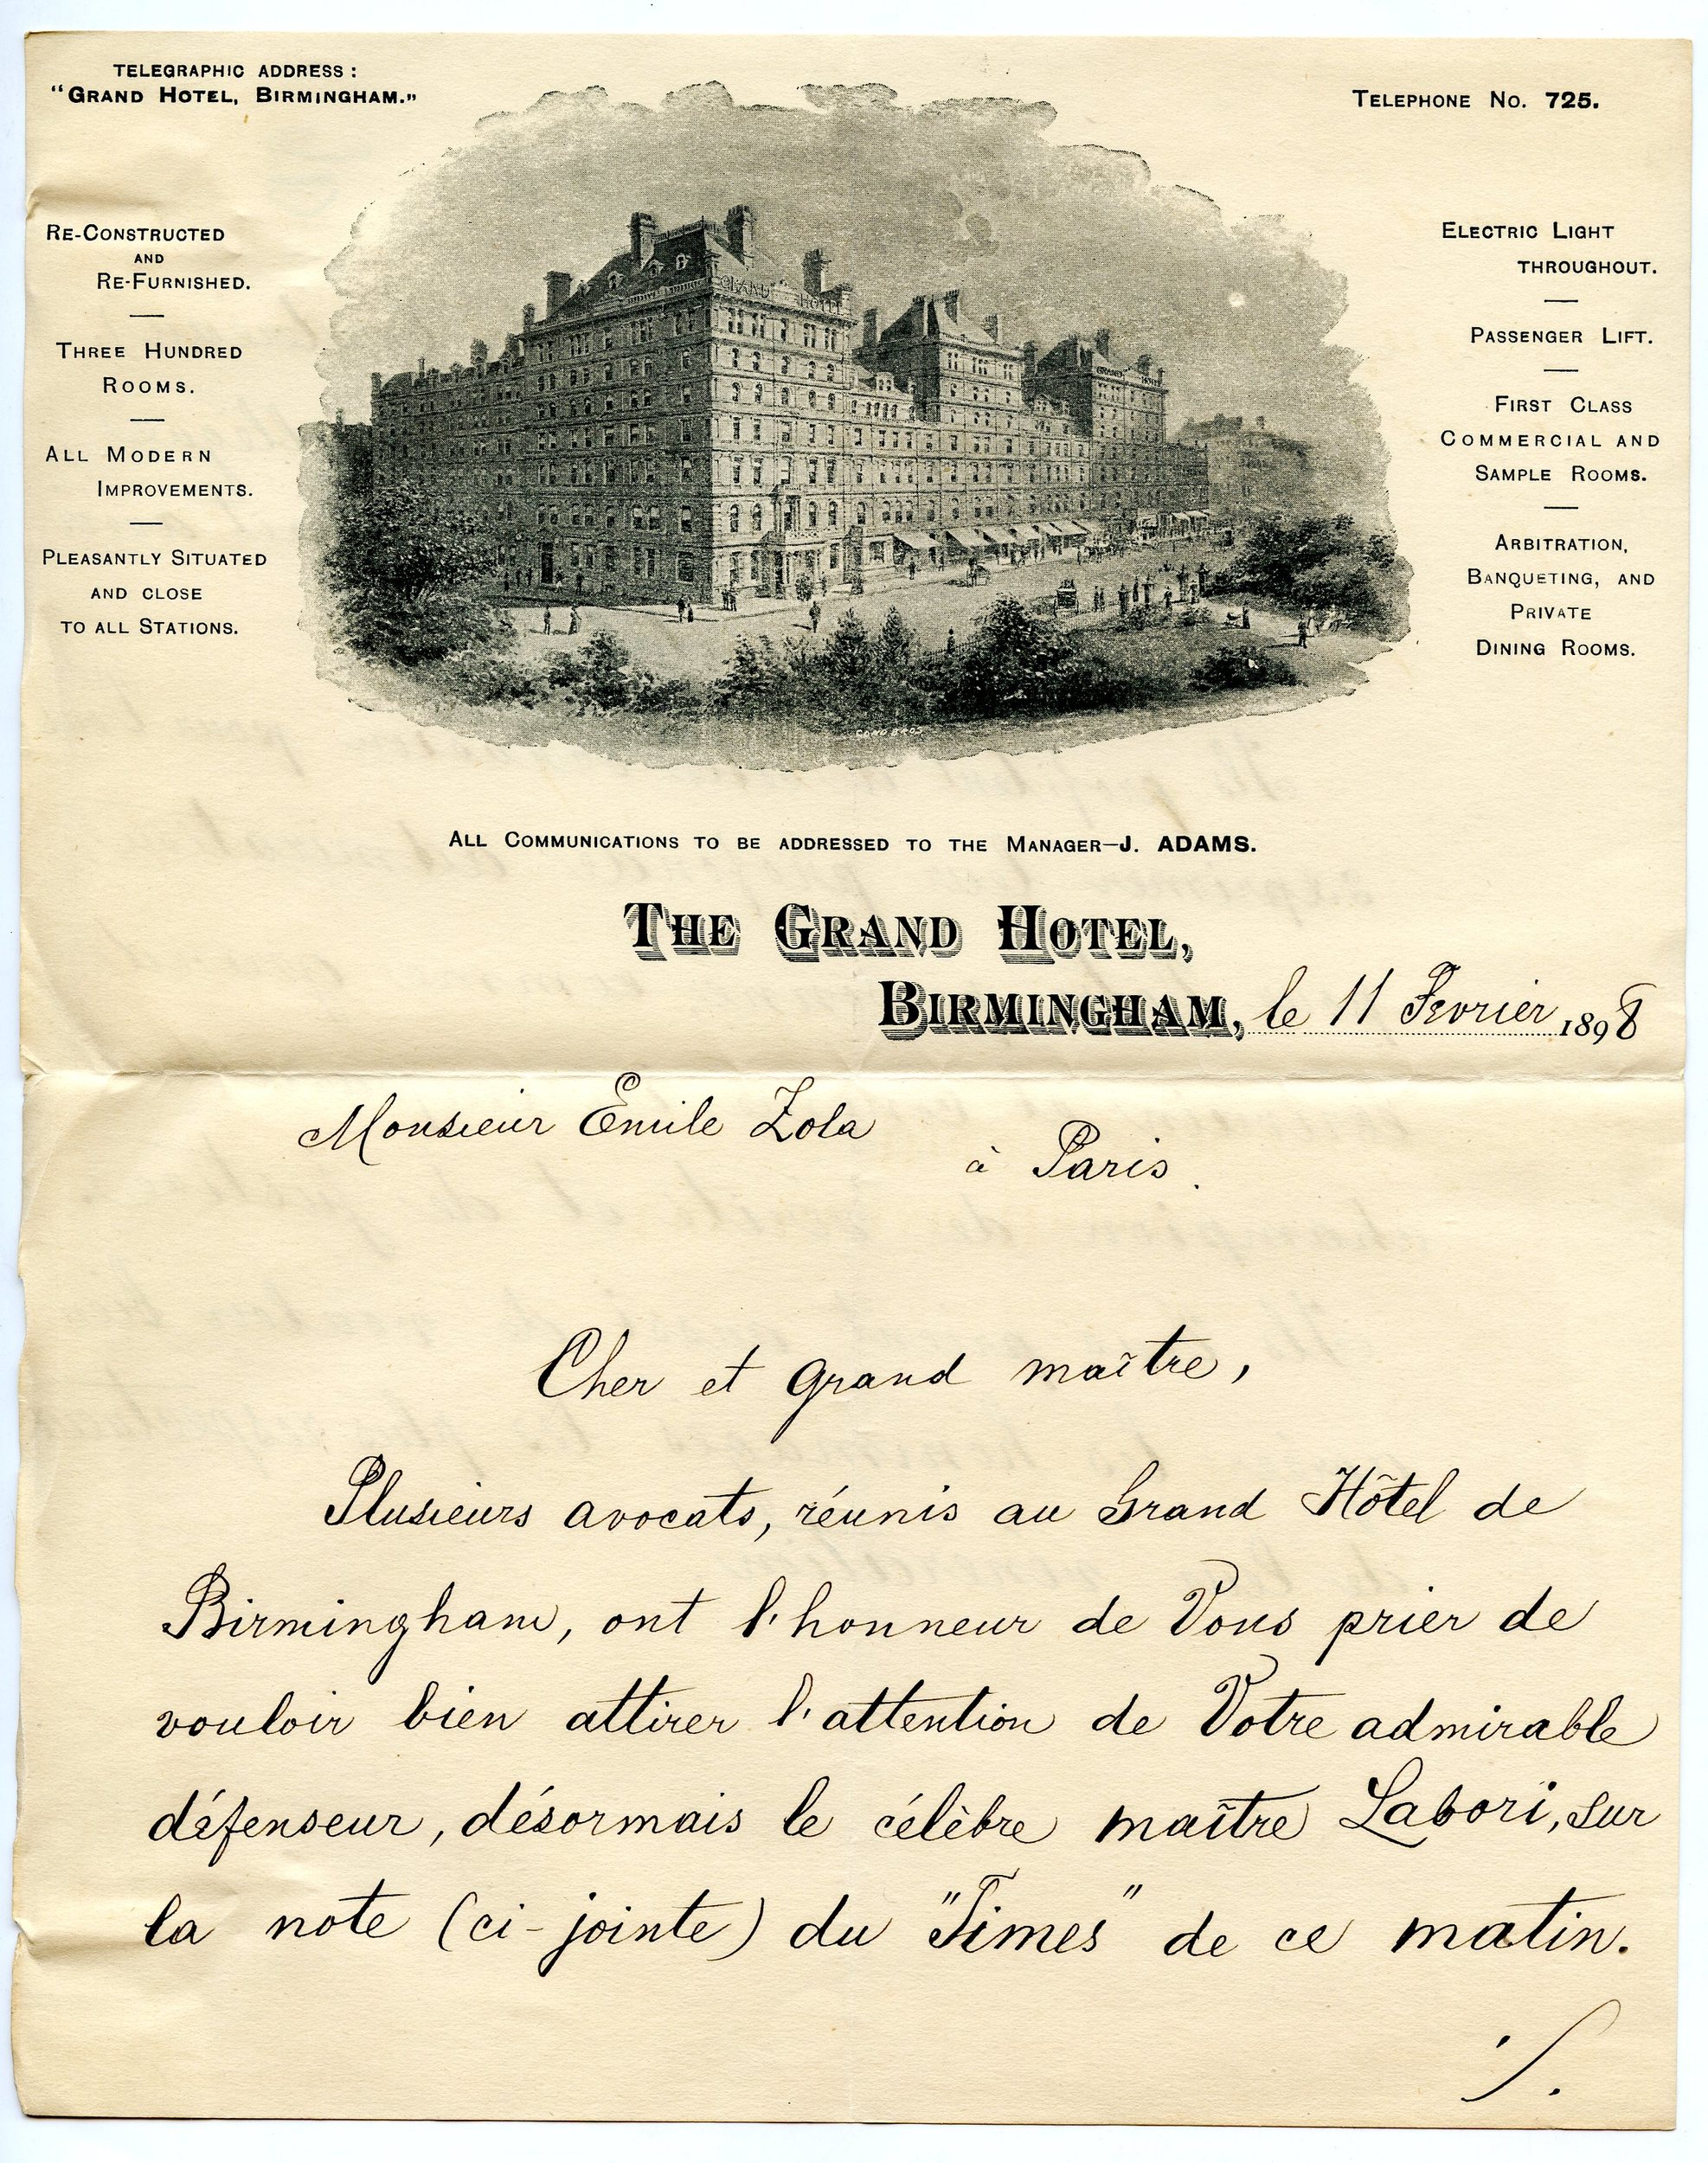 TELEGRAPHIC ADDRESS:
"GRAND HOTEL, BIRMINGHAM."
TELEPHONE No. 725.
RE-CONSTRUCTED
AND
RE-FURNISHED.
THREE HUNDRED
ROOMS.
ALL MODERN
IMPROVEMENTS.
PLEASANTLY SITUATED
AND CLOSE
TO ALL STATIONS.
GRAND HOTEL
GRAND HOTEL
COND BROS
ELECTRIC LIGHT
THROUGHOUT.
PASSENGER LIFT.
FIRST CLASS
COMMERCIAL AND
SAMPLE ROOMS.
ARBITRATION,
BANQUETING, AND
PRIVATE
DINING ROOMS.
ALL COMMUNICATIONS TO BE ADDRESSED TO THE MANAGER—J. ADAMS.
THE GRAND HOTEL,
BIRMINGHAM, le 11 Fevrier 1898
Monsieur Emile Zola
à Paris.
Cher et grand maître,
Plusieurs avocats, réunis au Grand Hôtel de
Birmingham, ont l'honneur de Vous prier de
vouloir bien attirer l'attention de Votre admirable
défenseur, désormais le célèbre maître Labori, sur
la note (ci-jointe) du "Times" de ce matin.
./.